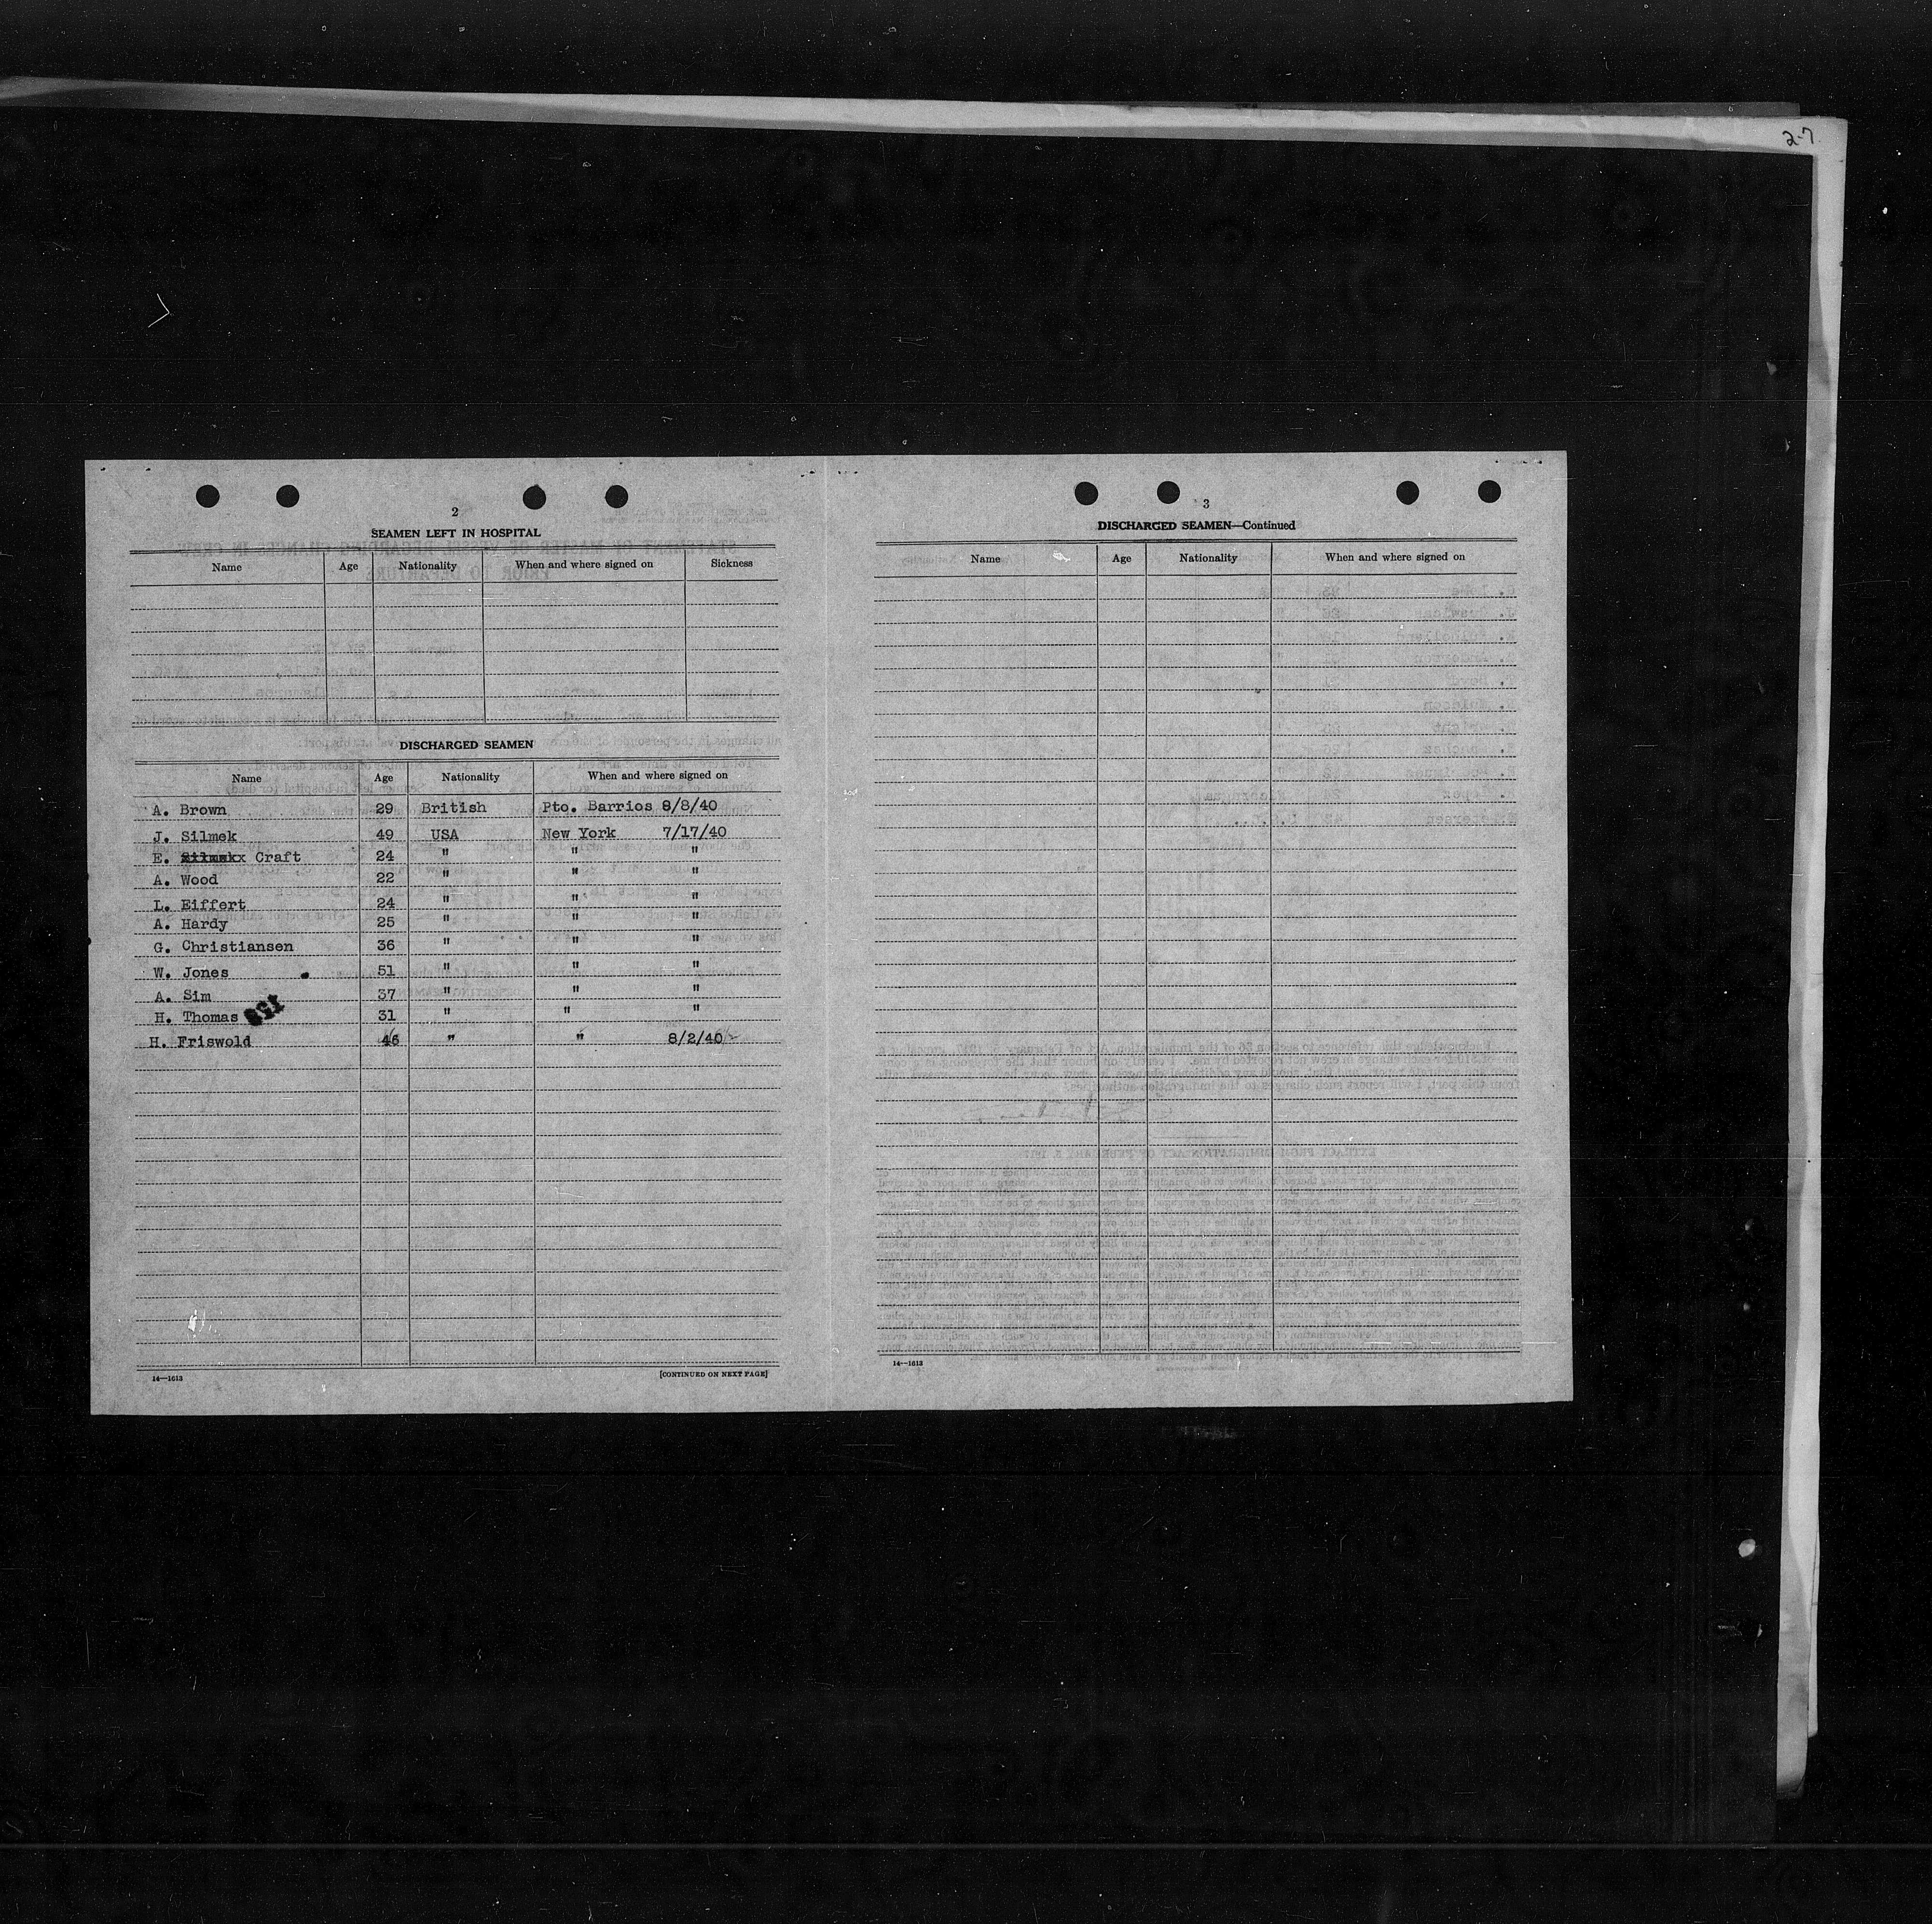 27
2
SEAMEN LEFT IN HOSPITAL
Name Age Nationality When and where signed on Sickness
DISCHARGED SEAMEN
Name Age Nationality When and where signed on
A. Brown 29 British Pto. Barrios 8/8/40
J. Silmek 49 USA New York 7/17/40
E. Craft 24 " " "
A. Wood 22 " " "
L. Eiffert 24 " " "
A. Hardy 25 " " "
G. Christiansen 36 " " "
W. Jones 51 " " "
A. Sim 37 " " "
H. Thomas 31 " " "
H. Friswold 46 " " 8/2/40
14—1613 [CONTINUED ON NEXT PAGE]
3
DISCHARGED SEAMEN—Continued
Name Age Nationality When and where signed on
14—1613